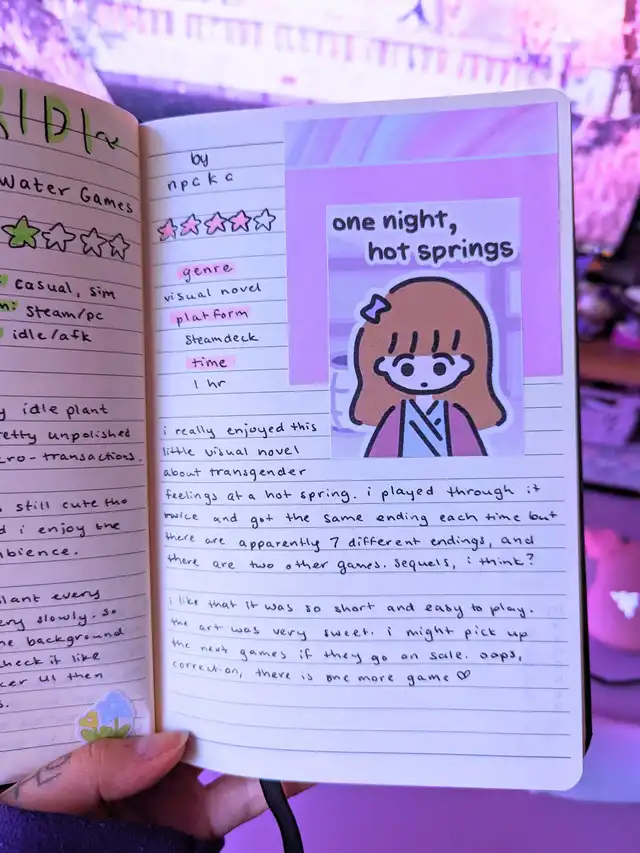 RIDI~
Water Games
: casual, sim
m: steam/pc
: idle/afk
y idle plant
retty unpolished
cro-transactions.
s still cute tho
d i enjoy the
bience.
lant every
ery slowly. so
he background
check it like
cer UI then
s.
by
npckc
genre
visual novel
platform
steamdeck
time
1 hr
one night,
hot springs
i really enjoyed this
little visual novel
about transgender
feelings at a hot spring. i played through it
twice and got the same ending each time but
there are apparently 7 different endings, and
there are two other games. sequels, i think?
i like that it was so short and easy to play.
the art was very sweet. i might pick up
the next games if they go on sale. oops,
correction, there is one more game ♡